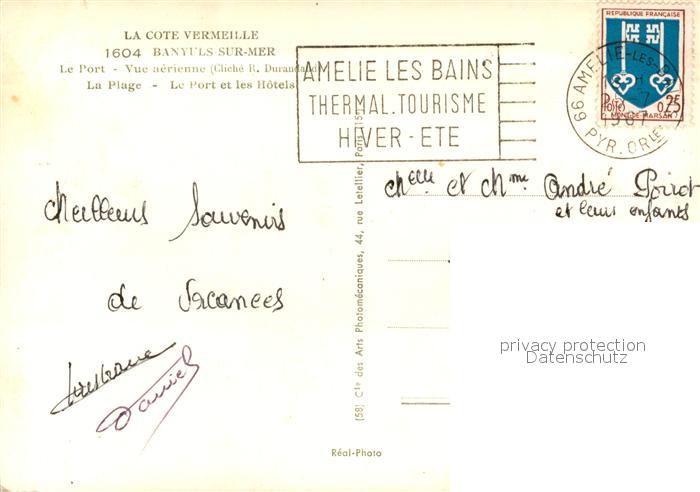 LA COTE VERMEILLE
1604 BANYULS-SUR-MER
Le Port - Vue aérienne (Cliché R. Durandaud)
La Plage - Le Port et les Hôtels
AMELIE LES BAINS
THERMAL.TOURISME
HIVER-ETE
66 AMELIE-LES-
7
1967
PYR. ORles
REPUBLIQUE FRANÇAISE
0,25
MONT-DE-MARSAN
Meilleurs Souvenirs
de Vacances
Daniel
(58) Cie des Arts Photomécaniques, 44, rue Letellier, Paris (15e)
Réal-Photo
Melle et Mme André Poirot
et leurs enfants
privacy protection
Datenschutz